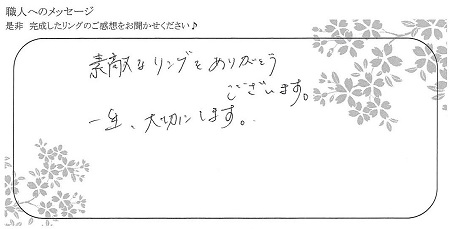 職人へのメッセージ
是非 完成したリングのご感想をお聞かせください♪
素敵なリングをありがとう
ございます。
一生、大切にします。